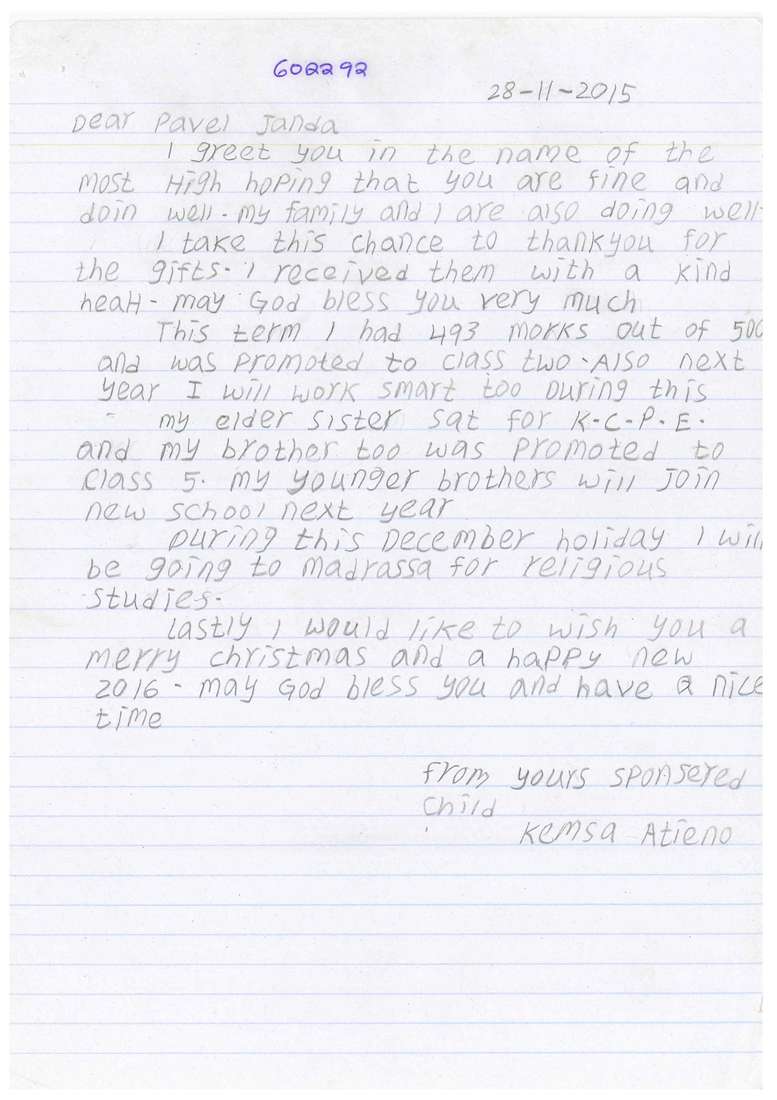 602292
28-11-2015
Dear Pavel Janda
I greet you in the name of the
most High hoping that you are fine and
doin well. my family and I are also doing well.
I take this chance to thankyou for
the gifts. I received them with a kind
heart. may God bless you very much
This term I had 493 morks out of 500
and was promoted to class two. Also next
year I will work smart too During this
my elder sister sat for K.C.P.E.
and my brother too was promoted to
Class 5. my younger brothers will join
new school next year
During this December holiday I will
be going to madrassa for religious
studies.
Lastly I would like to wish you a
merry christmas and a happy new
2016. may God bless you and have a nice
time
From yours sponsered
Child
Kemsa Atieno